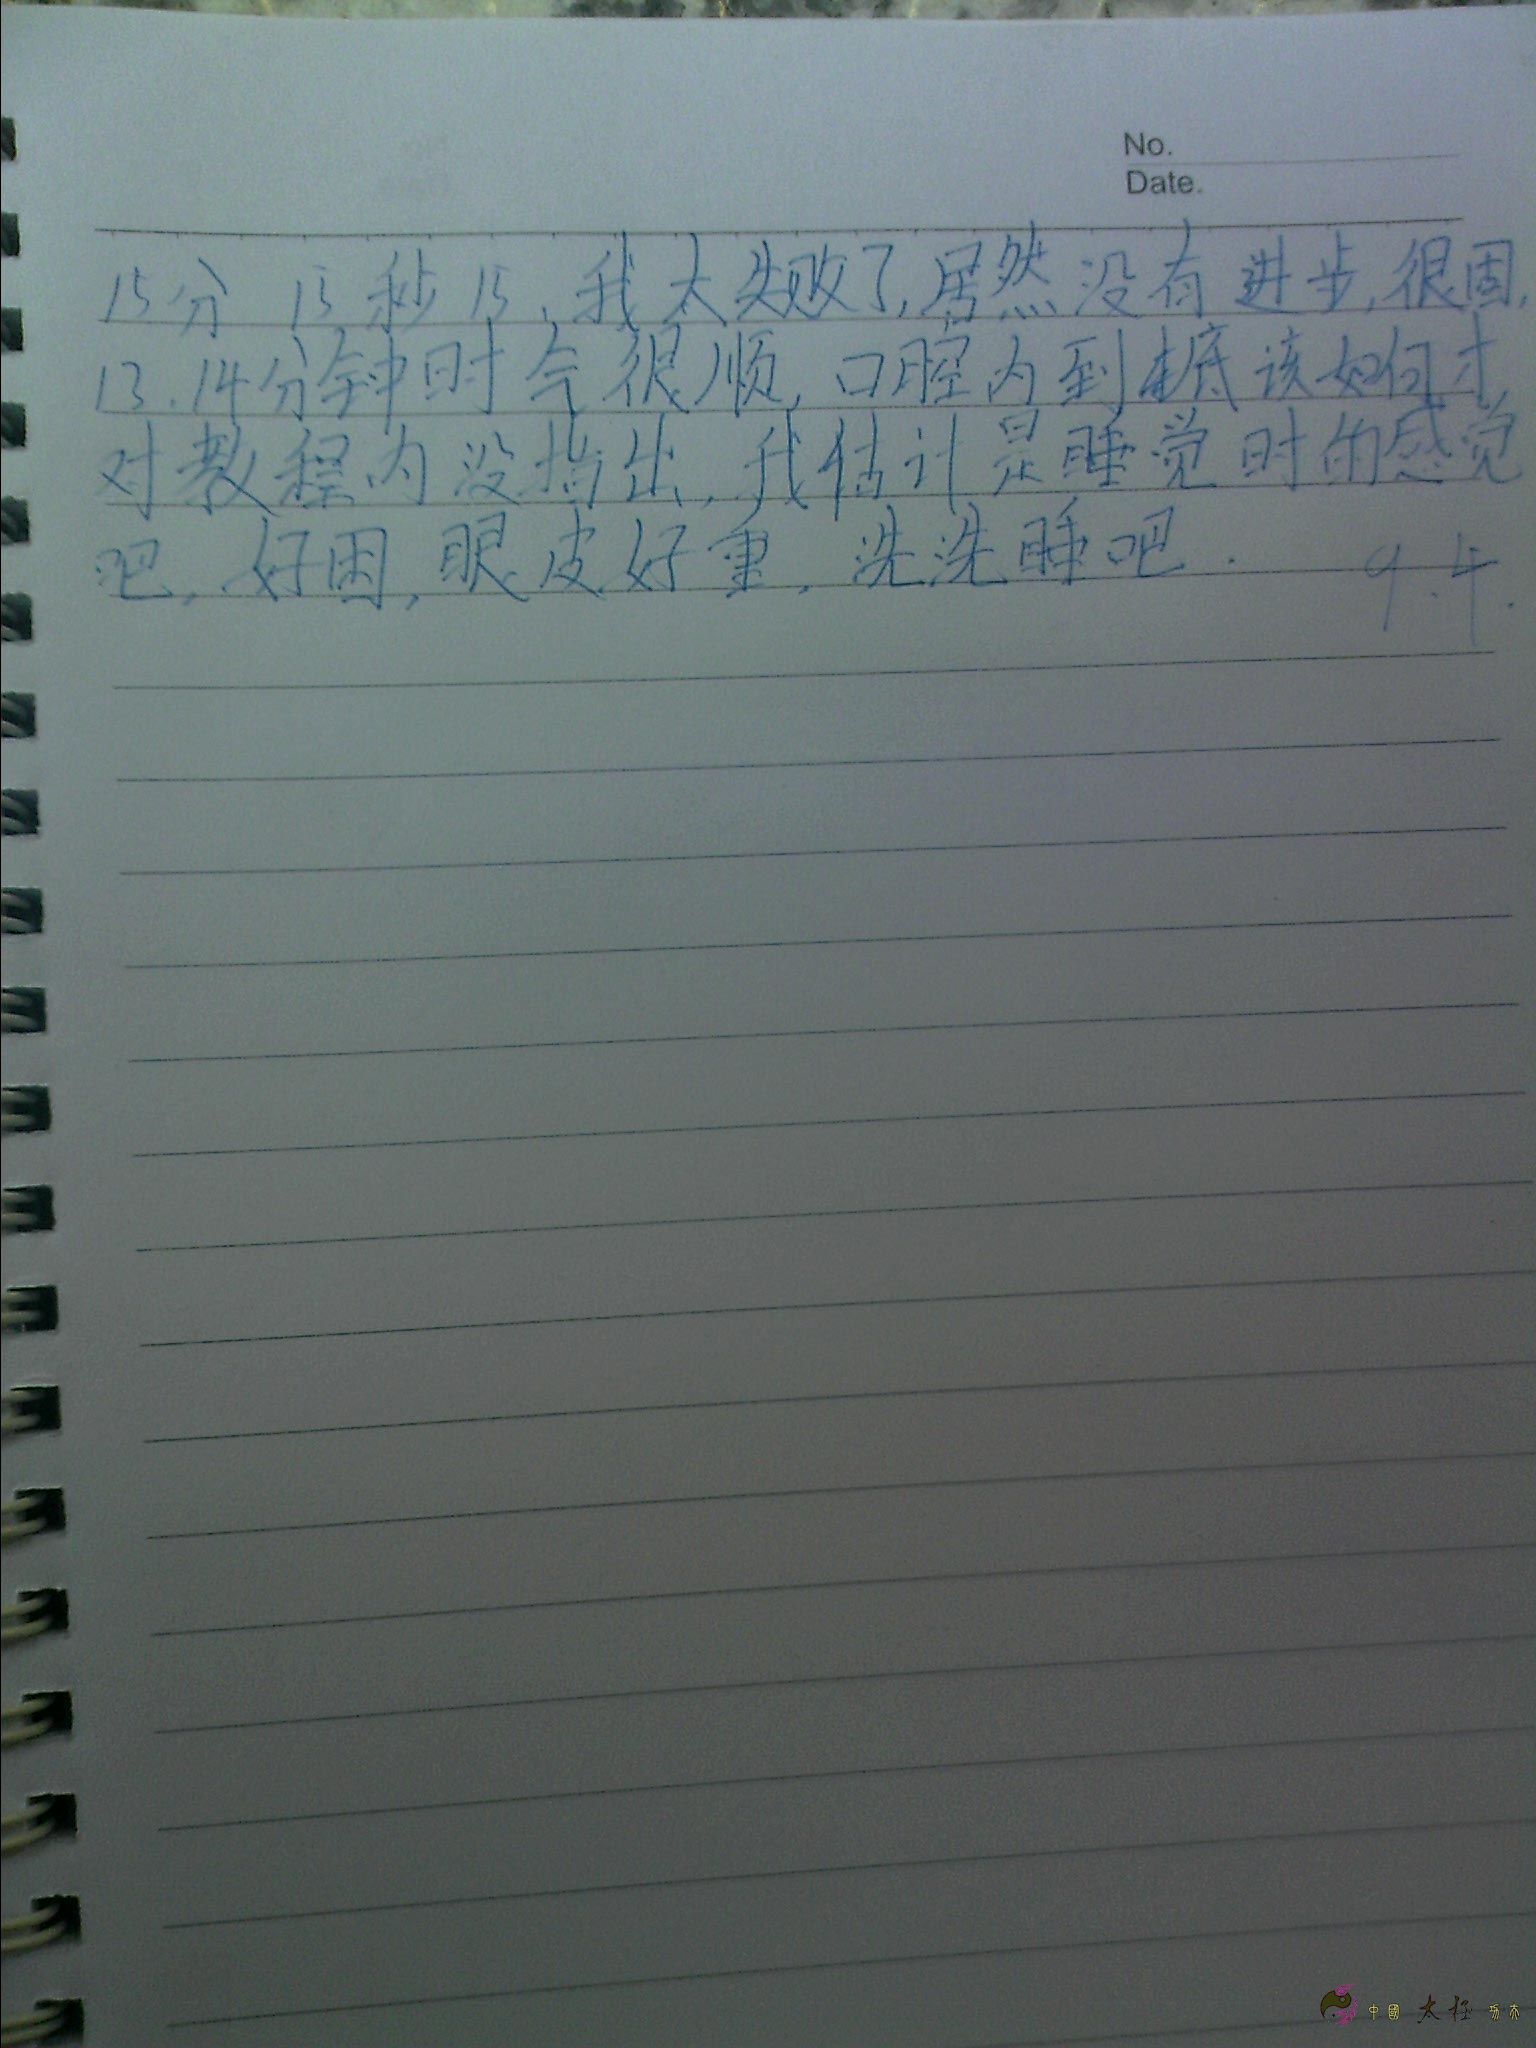 No.
Date.
15分 15秒15,我太失败了,居然没有进步,很困,
13.14分钟时气很顺,口腔内到底该如何才
对教程内没指出,我估计是睡觉时的感觉
吧,好困,眼皮好重,洗洗睡吧.
9.4.
中國太极